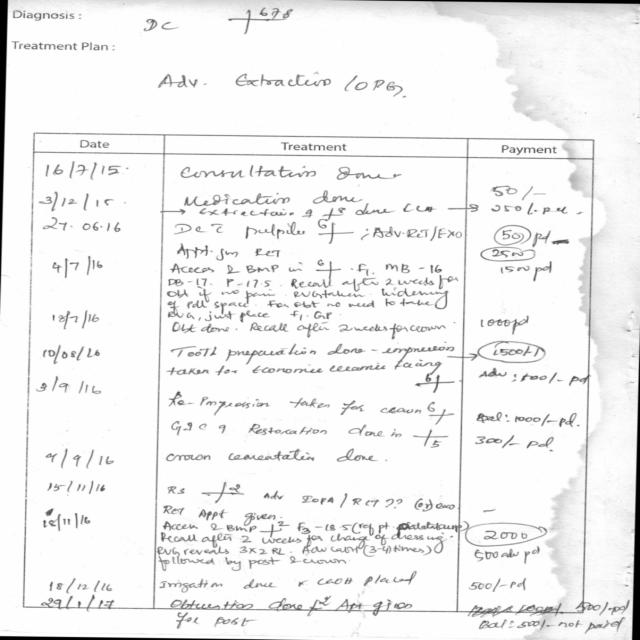 Diagnosis : DC 678
Treatment Plan :
Adv. Extraction (OPG).
Date Treatment Payment
16/7/15. Consultation done. 50/-
3/12/15 Medication done
→ Extraction of done LLA → 250/-pd.
27.06.16 DC pulpitis 6 ; Adv RCT/EXO 50 pd
Appt. for RCT 2500
4/7/16 Access & BMP in 6 . F1. MB-16 1500 pd
DB-17. P-17.5. Recall after 2 weeks for
Obt if no pain. RVG taken widening
of Pdl space. For Obt no need to take
RVG, just place F1. G.P.
13/7/16 Obt done. Recall after 2 weeks for crown. 1000 pd
10/08/16 Tooth preparation done - impression → 1500/-
taken for Economic ceramic facing 6 Adv : 500/- pd
2/9/16 Re-Impression taken for crown 6 Bal: 1000/- pd.
GIC 9 Restoration done in 5 300/- pd.
9/9/16 crown cementation done.
15/11/16 RS 2 Adv IOPA / RCT ?? (or) exo. —
RCT Appt given.
15/11/16 Access & BMP 2 F3 - 18.5 (ref pt 2000
Recall after 2 weeks for change of dressing.
RVG reveals 3x2 RL. Adv CaOH (3-4 times) 500 adv pd
followed by post & crown.
18/12/16 Irrigation done & CaOH placed 500/- pd
29/1/17 Obturation done 2 Apt given 500/- pd
for post Bal: 500/- not paid